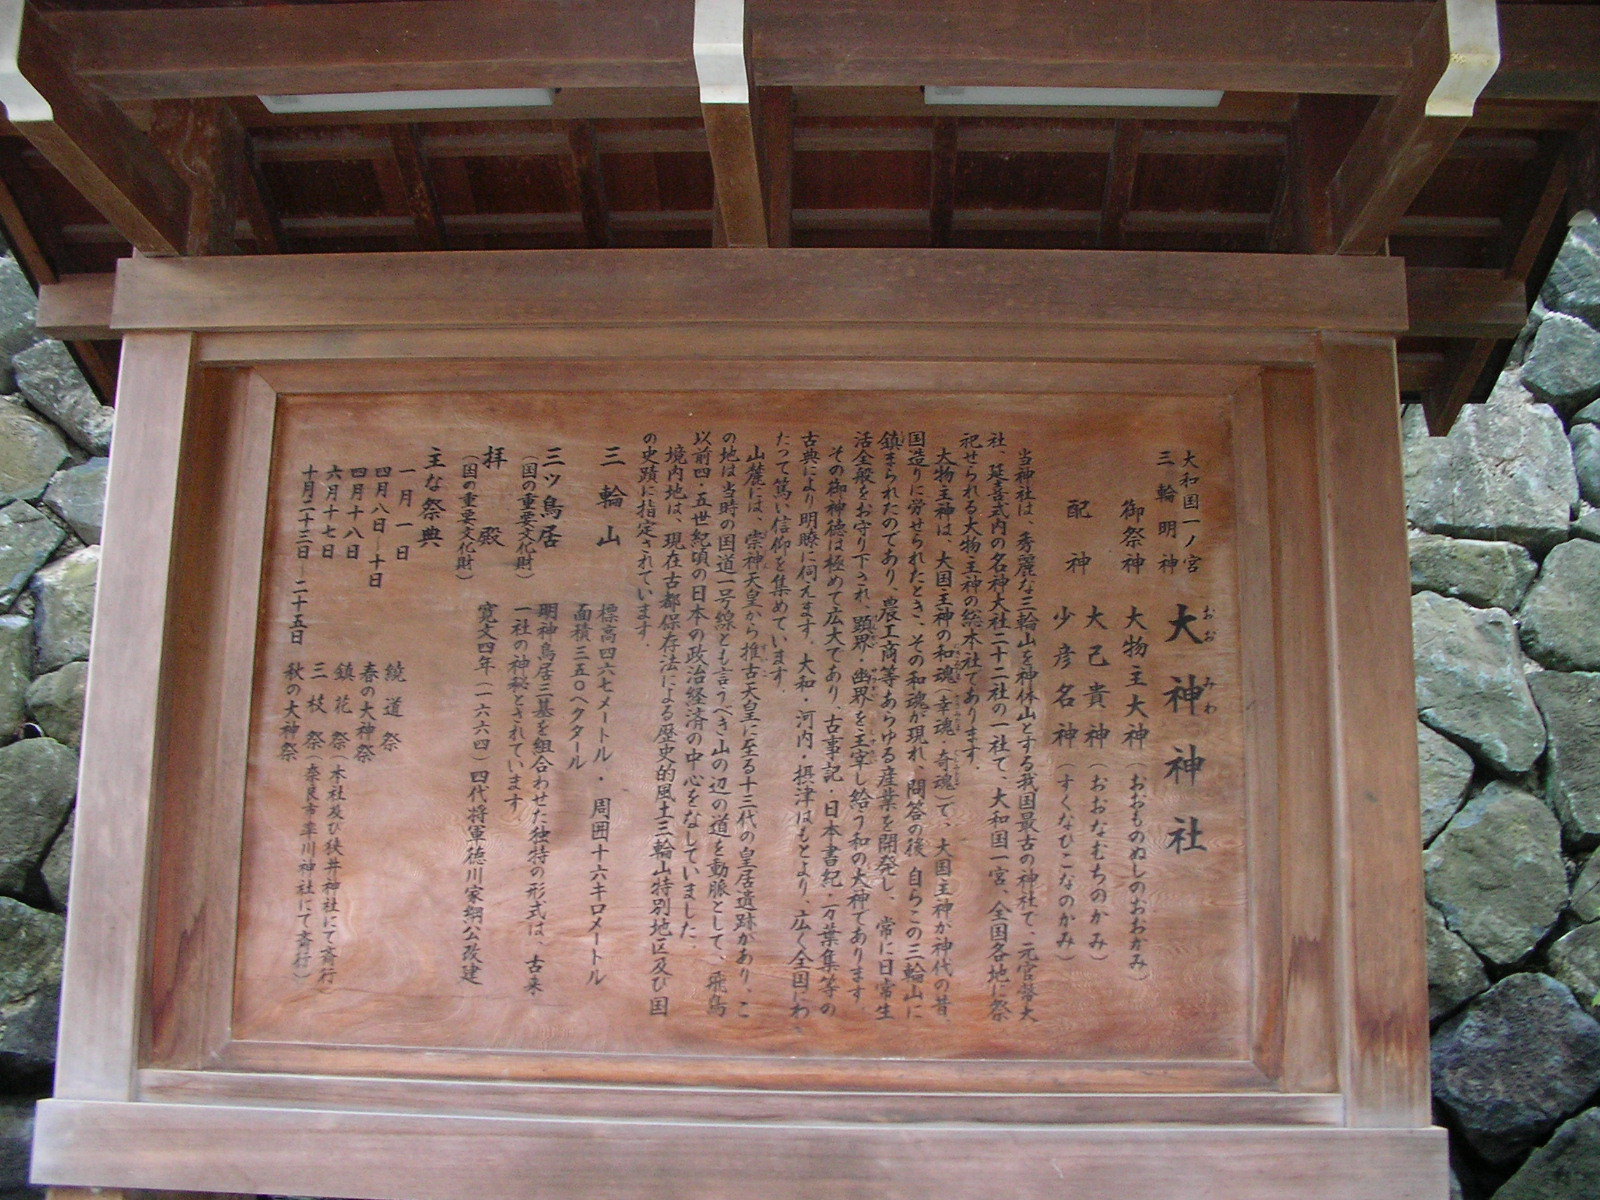 大和国一ノ宮
三輪明神
大神神社
おお みわ
御祭神 大物主大神(おおものぬしのおおかみ)
配神 大己貴神(おおなむちのかみ)
少彦名神(すくなひこなのかみ)
当神社は、秀麗な三輪山を神体山とする我国最古の神社で、元官幣大
社、延喜式内の名神大社二十二社の一社で、大和国一宮、全国各地に祭
祀せられる大物主神の総本社であります。
大物主神は、大国主神の和魂(幸魂 奇魂)で、大国主神が神代の昔、
国造りに労せられたとき、その和魂が現れ、問答の後 自らこの三輪山に
鎮まられたのであり、農工商等あらゆる産業を開発し、常に日常生
活全般をお守り下され、顕界・幽界を主宰し給う和の大神であります。
その御神徳は極めて広大であり、古事記・日本書紀・万葉集等の
古典により明瞭に伺えます。大和・河内・摂津はもとより、広く全国にわ
たって篤い信仰を集めています。
山麓には、崇神天皇から推古天皇に至る十三代の皇居遺跡があり、こ
の地は当時の国道一号線とも言うべき山の辺の道を動脈として、飛鳥
以前四・五世紀頃の日本の政治経済の中心をなしていました。
境内地は、現在古都保存法による歴史的風土三輪山特別地区及び国
の史蹟に指定されています。
三輪山 標高四六七メートル・周囲十六キロメートル
面積三五〇ヘクタール
三ツ鳥居 明神鳥居三基を組合わせた独特の形式は、古来
(国の重要文化財) 一社の神秘とされています。
拝殿 寛文四年(一六六四)四代将軍徳川家綱公改建
(国の重要文化財)
主な祭典
一月一日 繞道祭
四月八日―十日 春の大神祭
四月十八日 鎮花祭(本社及び狭井神社にて斎行)
六月十七日 三枝祭(奈良市率川神社にて斎行)
十月二十三日―二十五日 秋の大神祭